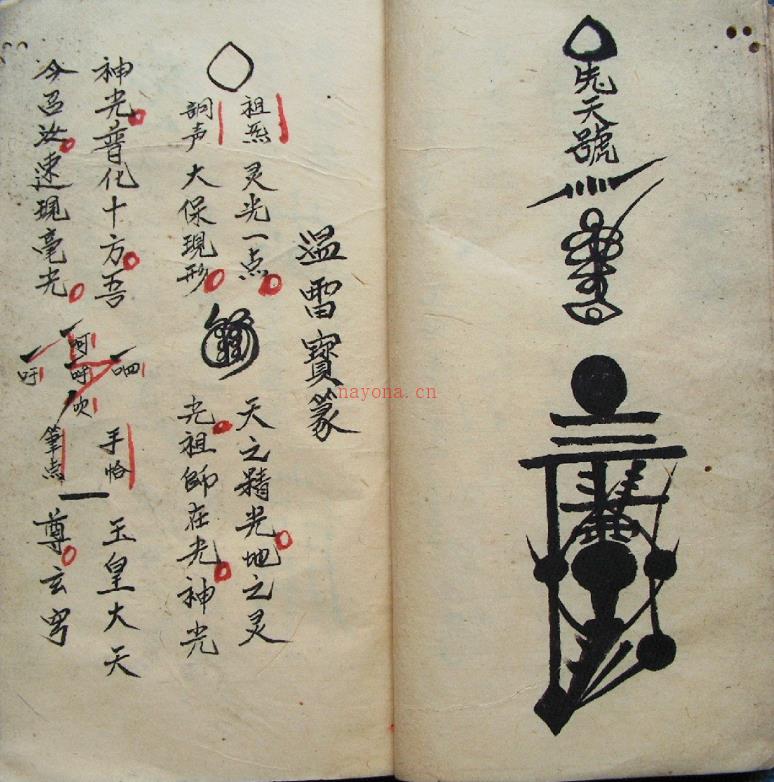 先天號
溫雷寶篆
祖炁
灵光一点
天之精光地之灵
大保現形
光祖師在光神光
神光普化十方吾
手恰
玉皇大天
今召汝速現毫光
呬
呵
呼
吹
吁
筆点
尊玄穹
nayona.cn